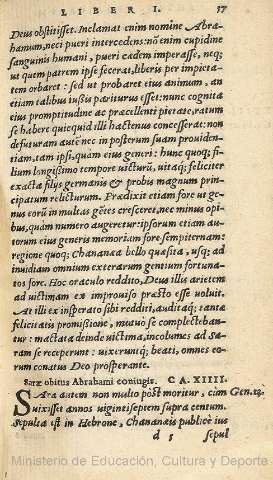 LIBER I. 57
Deus obstitisset. Inclamat enim nomine Abra-
hamum, neci pueri intercedens: nō enim cupidine
sanguinis humani, pueri cædem imperasse, neq;
ut quem patrem ipse fecerat, liberis per impieta-
tem orbaret: sed ut probaret eius animum, an
etiam talibus iussis pariturus esset: nunc cognita
eius promptitudine ac præcellenti pietate, ratum
se habere quicquid illi hactenus concesserat: non
defuturam aut ẽ nec in posterum suam prouiden-
tiam, tam ipsi, quàm eius generi: hunc quoq; fi-
lium longissimo tempore uicturū, uitaq; feliciter
exacta filijs germanis & probis magnum prin-
cipatum relicturum. Prædixit etiam fore ut ge-
nus eorū in multas gẽtes cresceret, nec minus opi-
bus, quàm numero augeretur: ipsorum etiam au-
torum eius generis memoriam fore sempiternam:
regione quoq; Chananæa bello quæsita, usq; ad
inuidiam omnium exterarum gentium fortuna-
tos fore. Hoc oraculo reddito, Deus illis arietem
ad uictimam ex improuiso præsto esse uoluit.
At illi ex insperato sibi redditi, auditaq; tanta
felicitatis promissione, mutuò se complecteban-
tur: mactata deinde uictima, incolumes ad Sa-
ram se receperunt: uixeruntq; beati, omnes eo-
rum conatus Deo prosperante.
Saræ obitus Abrahami coniugis. CA. XIIII.
SAra autem non multo pòst moritur, cum Gen.23.
uixisset annos uigintiseptem supra centum.
Sepulta est in Hebrone, Chananæis publicè ius
d 5 sepul
Ministerio de Educación, Cultura y Deporte